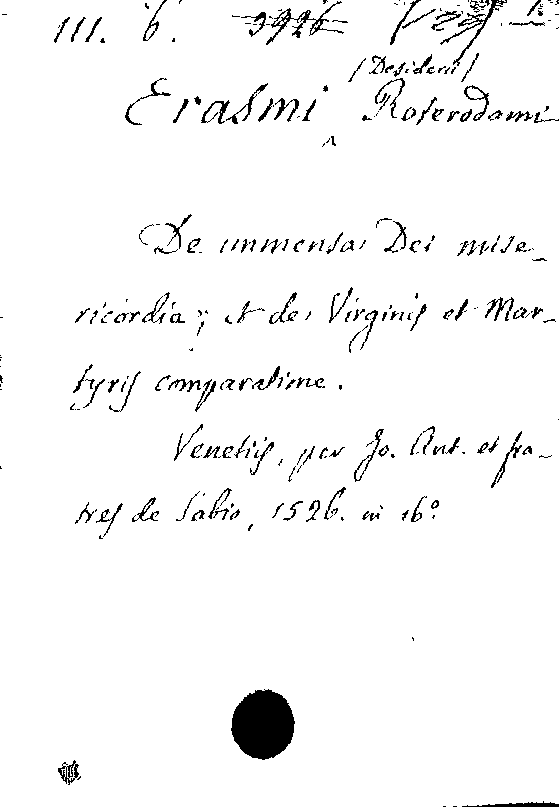 III. 6. 3926
(Desiderii)
Erasmi Roterodami
De immensa Dei mise-
ricordia; et de Virginis et Mar-
tyris comparatione.
Venetiis, per Jo. Ant. et fra-
tres de Sabio, 1526. in 16º